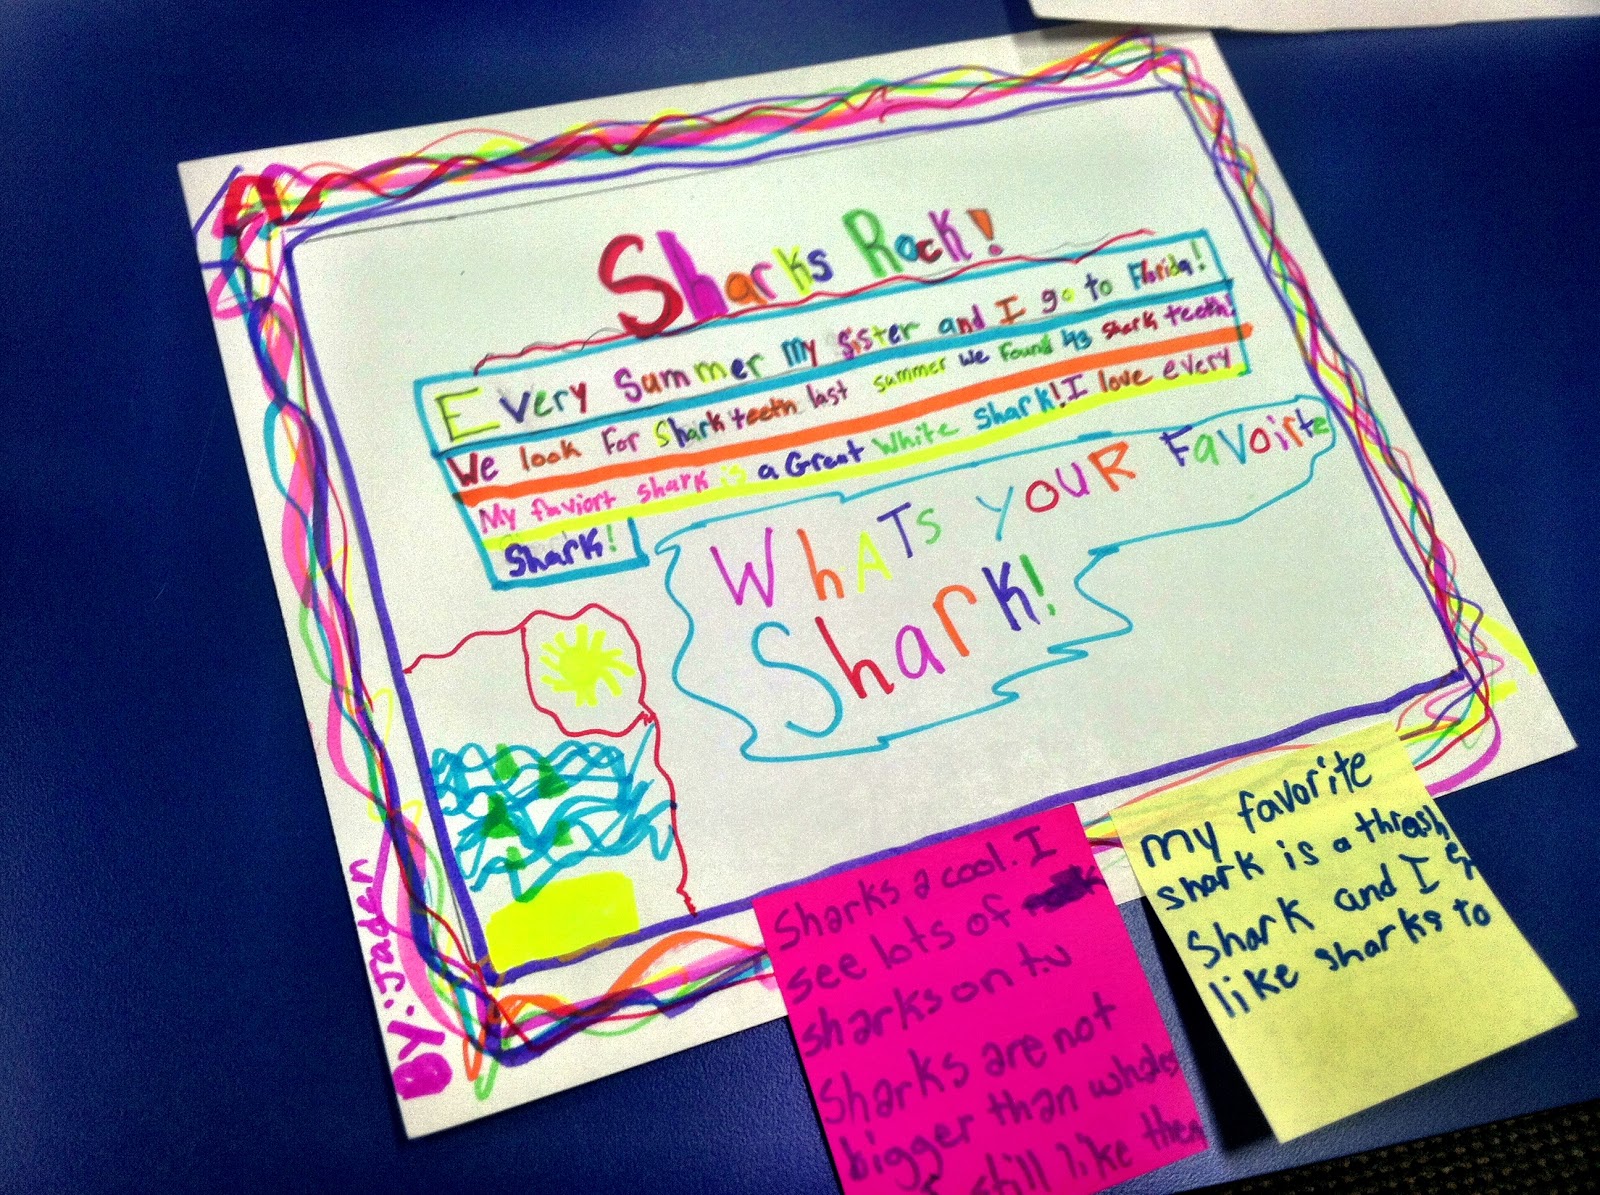 Sharks Rock!
Every Summer my sister and I go to Florida!
We look For Shark teeth last summer we found 43 shark teeth!
My faviort shark is a Great White Shark! I love every
Shark!
WhATs YOUR Favoirte
Shark!
BY: Jaden
Sharks a cool. I
see lots of
sharks on t.v
Sharks are not
bigger than whales
still like them
my favorite
shark is a thrash
Shark and I
like sharks to